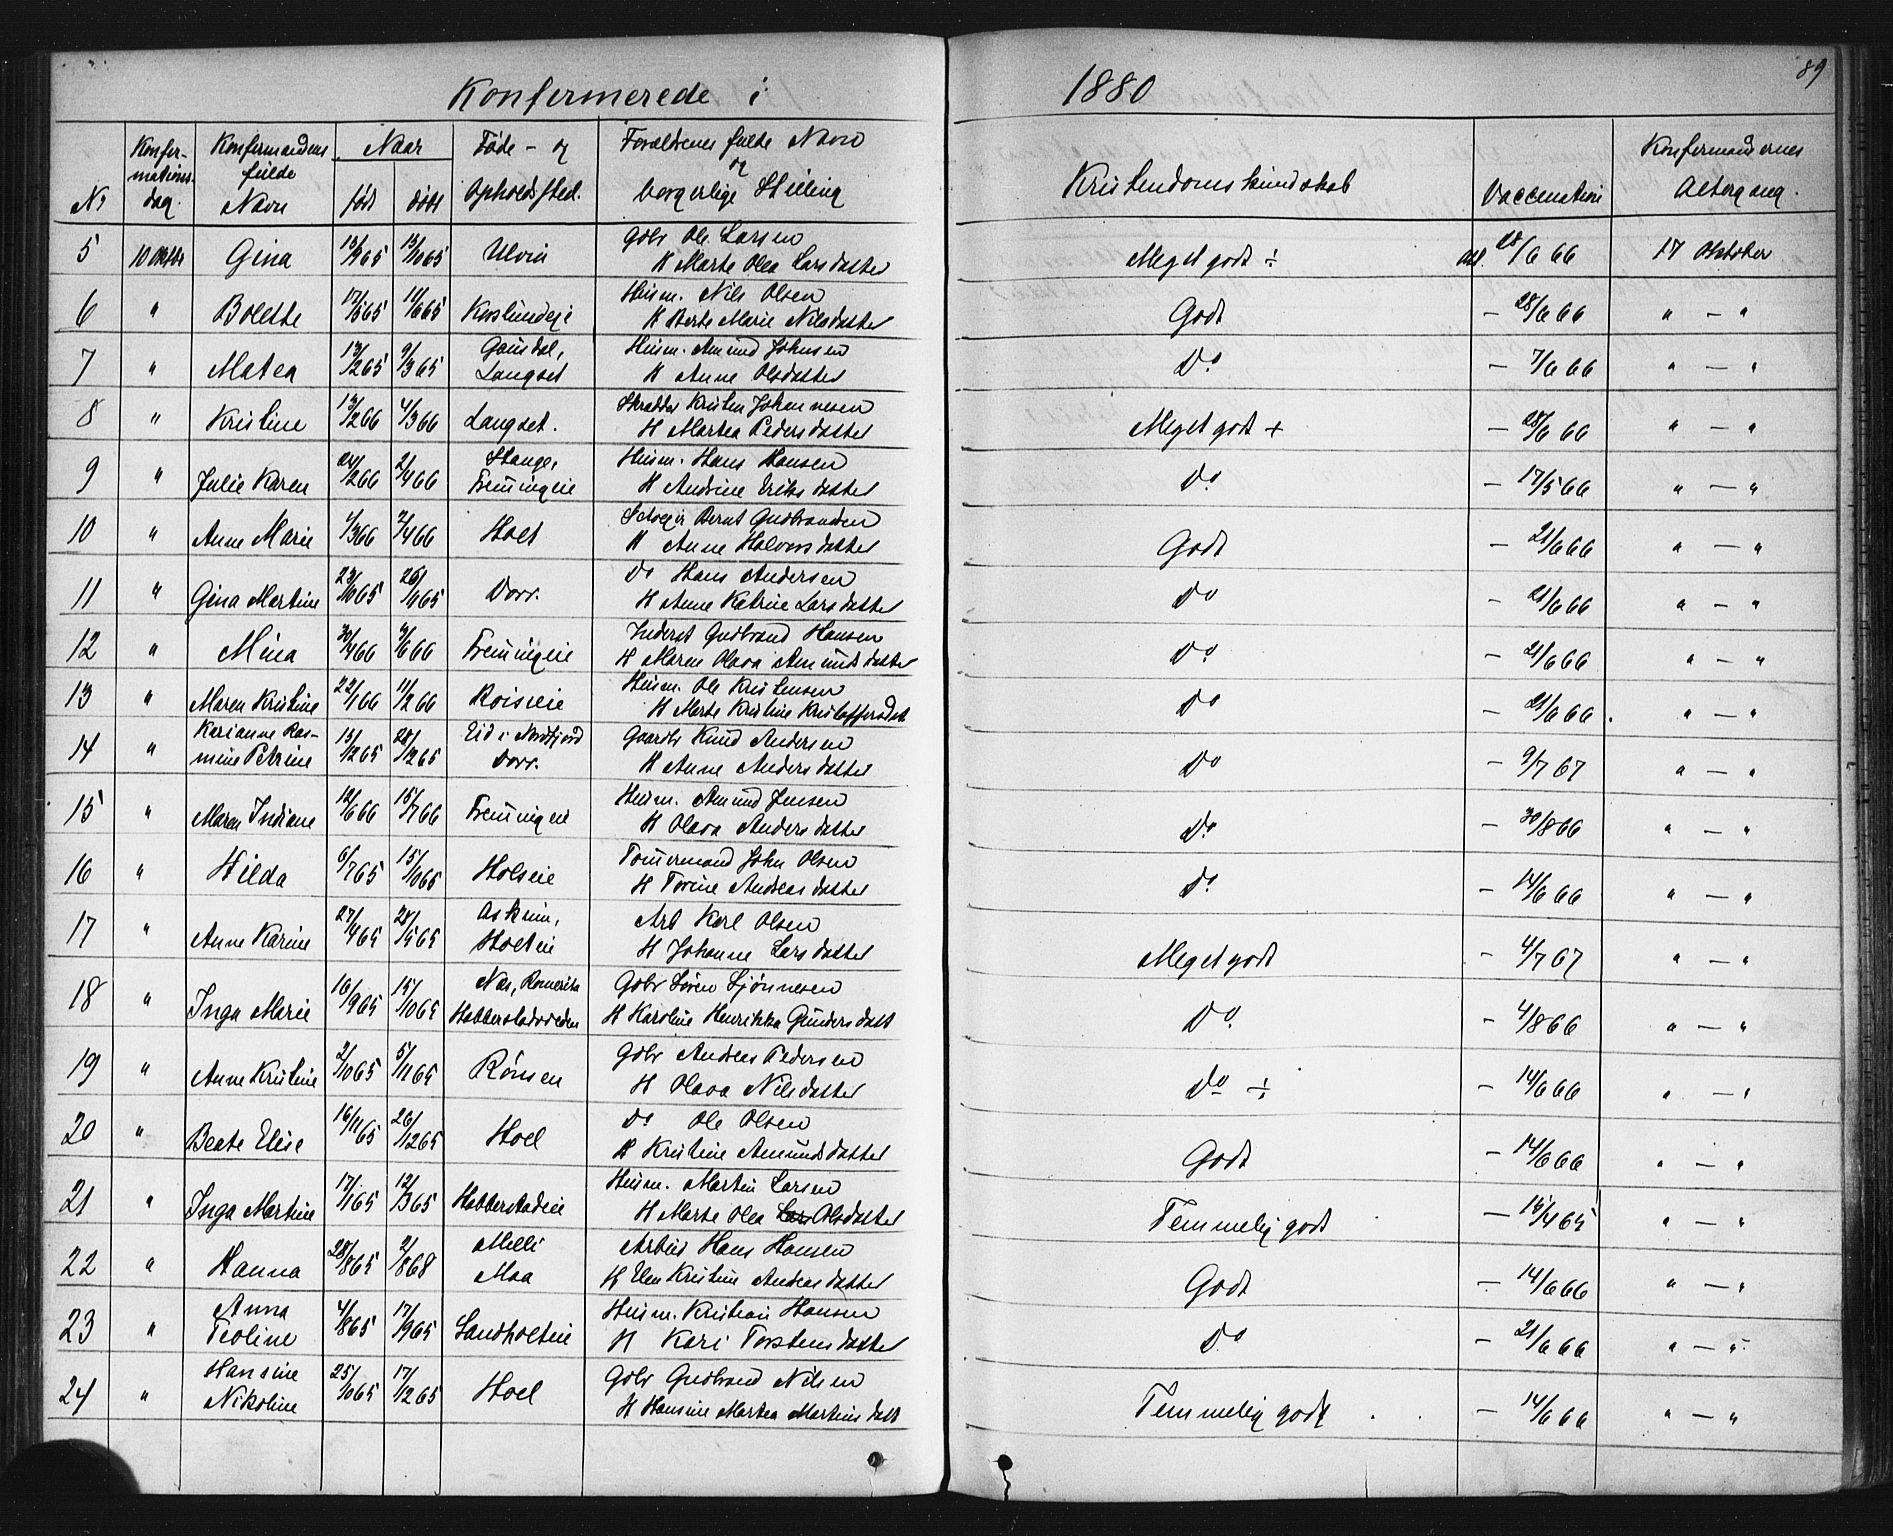 Konfermerede i 1880
89
Nr | Konfer-mations-dag. | Konfermandens fulde Navn | Naar født | døbt | Føde- og Opholdssted. | Forældrenes fulde Navn og borgerlige Stilling | Kristendomskundskab | Vaccination | Konfermandernes Altergang.
5 | 10 Oktbr | Gina | 13/9 65 | 13/10 65 | Ulvin | Gdbr Ole Larsen | Meget godt ÷ | 28/6 66 | 17 Oktober
H Marte Olea Larsdatter
6 | " | Bolette | 17/5 65 | 11/6 65 | | Husm. Nils Olsen | Godt | - 28/6 66 | " - "
H Berte Marie Nilsdatter
7 | " | Matea | 13/2 65 | 9/3 65 | Gausdal, Langset | Husm. Amund Johnsen | Do | - 7/6 66 | " - "
H Anne Olsdatter
8 | " | Kristine | 13/2 66 | 4/3 66 | Langset. | Skrædder Kristen Johannesen | Meget godt + | - 28/6 66 | " - "
H Martea Pedersdatter
9 | " | Julie Karen | 24/2 66 | 2/4 66 | Stange, Fremingeie | Husm. Hans Hansen | Do | - 17/5 66 | " - "
H Andrine Eriksdatter
10 | " | Anne Marie | 1/3 66 | 2/4 66 | Hoel | Bernt Gudbrandsen | Godt | - 21/6 66 | " - "
H Anne Halvorsdatter
11 | " | Gina Martine | 23/10 65 | 26/11 65 | Dorr. | Do Hans Andersen | Do | - 21/6 66 | " - "
H Anne Katrine Larsdatter
12 | " | Mina | 30/4 66 | 3/6 66 | Fremingeie | Inderst Gudbrand Hansen | Do | - 21/6 66 | " - "
H Maren Olava Amundsdatter
13 | " | Maren Kristine | 22/1 66 | 11/2 66 | Roiseie | Husm. Ole Kristensen | Do | - 21/6 66. | " - "
H Marte Kristine Kristoffersdat
14 | " | Karianne Ras-mine Petrine | 13/12 65 | 28/12 65 | Eid i Nordfjord Dorr. | Gaardbr Knud Andersen | Do | - 9/7 67 | " - "
H Anne Andersdatter
15 | " | Maren Indiane | 12/6 66 | 15/7 66 | Fremingeie | Husm. Amund Jensen | Do | - 30/8 66 | " - "
H Olava Andersdatter
16 | " | Hilda | 6/7 65 | 15/10 65 | Holseie | Tømermand John Olsen | Do | - 14/6 66 | " - "
H Torine Andreasdatter
17 | " | Anne Karine | 27/4 65 | 28/5 65 | Askim, Hoeleie | Arb Karl Olsen | Meget godt | - 4/7 67 | " - "
H Johanne Larsdatter
18 | " | Inga Marie | 16/9 65 | 15/10 65 | Næs, Romerike | Gdbr Søren Sjønnesen | Do | - 4/8 66 | " - "
H Karoline Henrikka Gundersdatt
19 | " | Anne Kristine | 2/10 65 | 5/11 65 | Rønsen | Gdbr Andreas Pedersen | Do ÷ | - 14/6 66 | " - "
H Olava Nilsdatter
20 | " | Beate Elise | 16/11 65 | 26/12 65 | Hoel | Do Ole Olsen | Godt | - 14/6 66 | " - "
H Kristine Amundsdatter
21 | " | Inga Martine | 17/1 65 | 12/3 65 | Habberstadeie | Husm. Martin Larsen | Temmelig godt | - 15/4 65 | " - "
H Marte Olea Lars Olsdatter
22 | " | Hanna | 28/8 65 | 2/8 68 | Melli Moa | Arbeis Hans Hansen | Godt | - 14/6 66 | " - "
H Elen Kristine Andreasdatter
23 | " | Anna Teoline | 4/8 65 | 17/9 65 | Sandholteie | Husm. Kristian Hansen | Do | - 21/6 66 | " - "
H Kari Torstensdatter
24 | " | Hansine Nikoline | 25/10 65 | 17/12 65 | Hoel | Gdbr Gudbrand Nilsen | Temmelig godt | - 14/6 66 | " - "
H Hansine Martea Martinsdatt